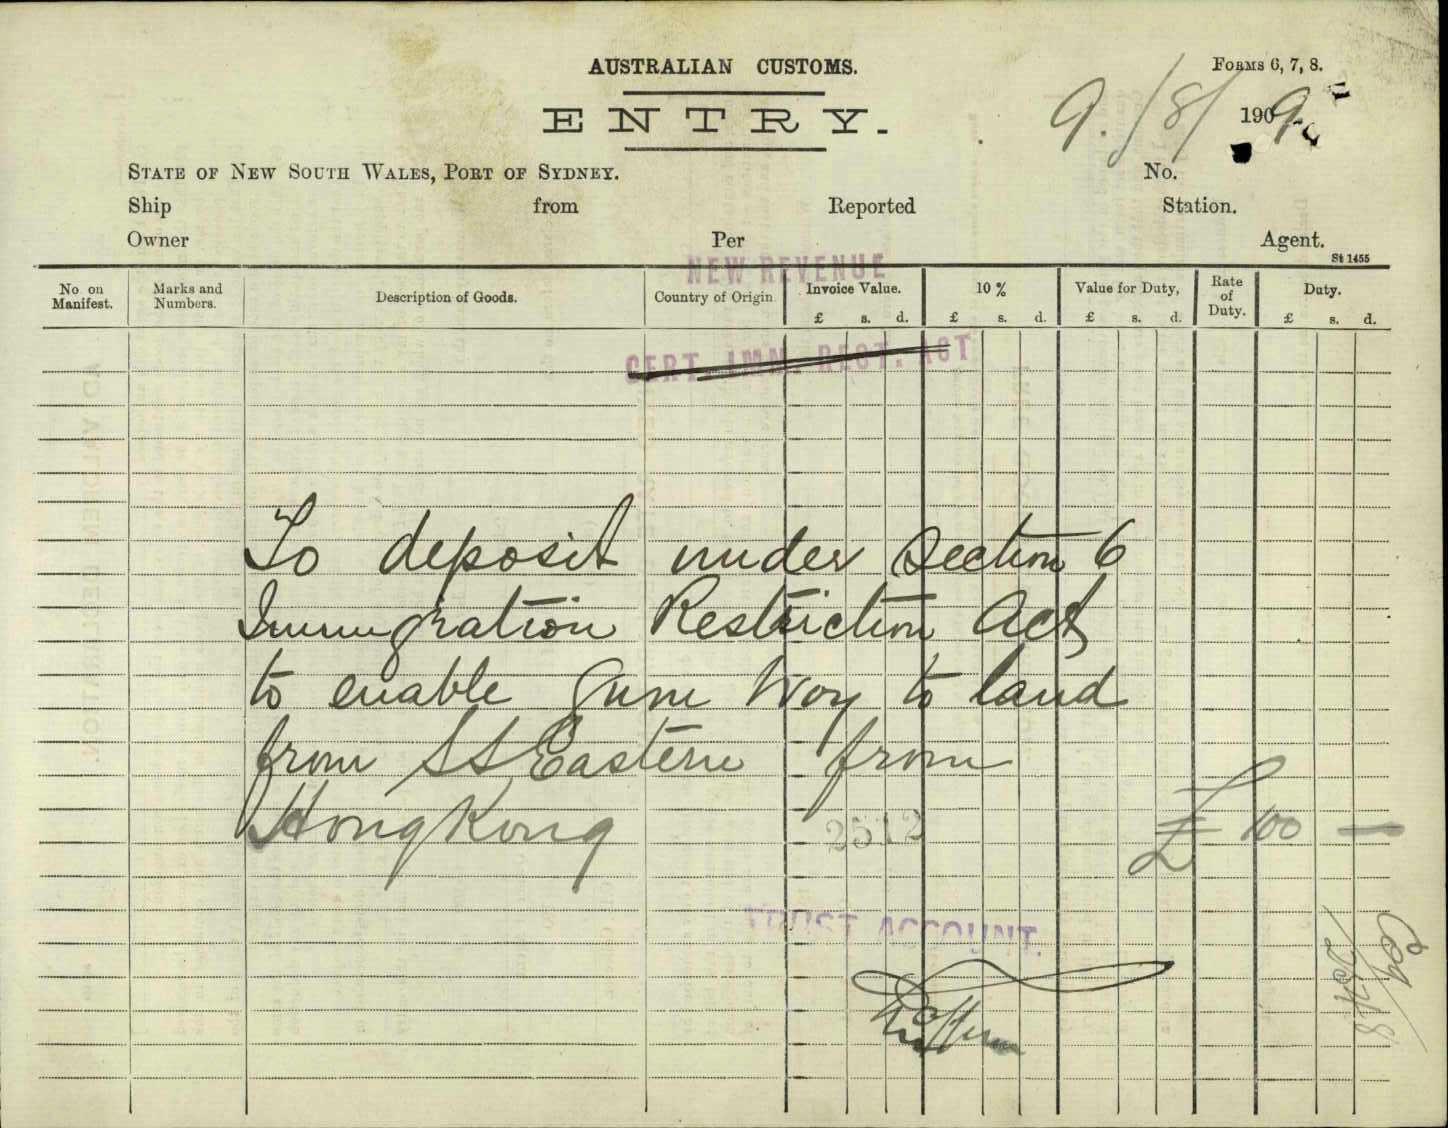 AUSTRALIAN CUSTOMS.
FORMS 6, 7, 8.
ENTRY.
9./8/ 1909
STATE OF NEW SOUTH WALES, PORT OF SYDNEY.
No.
Ship from Reported Station.
Owner Per Agent.
St 1455
NEW REVENUE
No on Manifest. Marks and Numbers. Description of Goods. Country of Origin Invoice Value. 10 % Value for Duty, Rate of Duty. Duty.
£ s. d. £ s. d. £ s. d. £ s. d.
CERT. IMM. REST. ACT
To deposit under Section 6
Immigration Restriction Act
to enable Gum Woy to land
from SS Eastern from
Hong Kong 2512 £ 100 —
TRUST ACCOUNT.